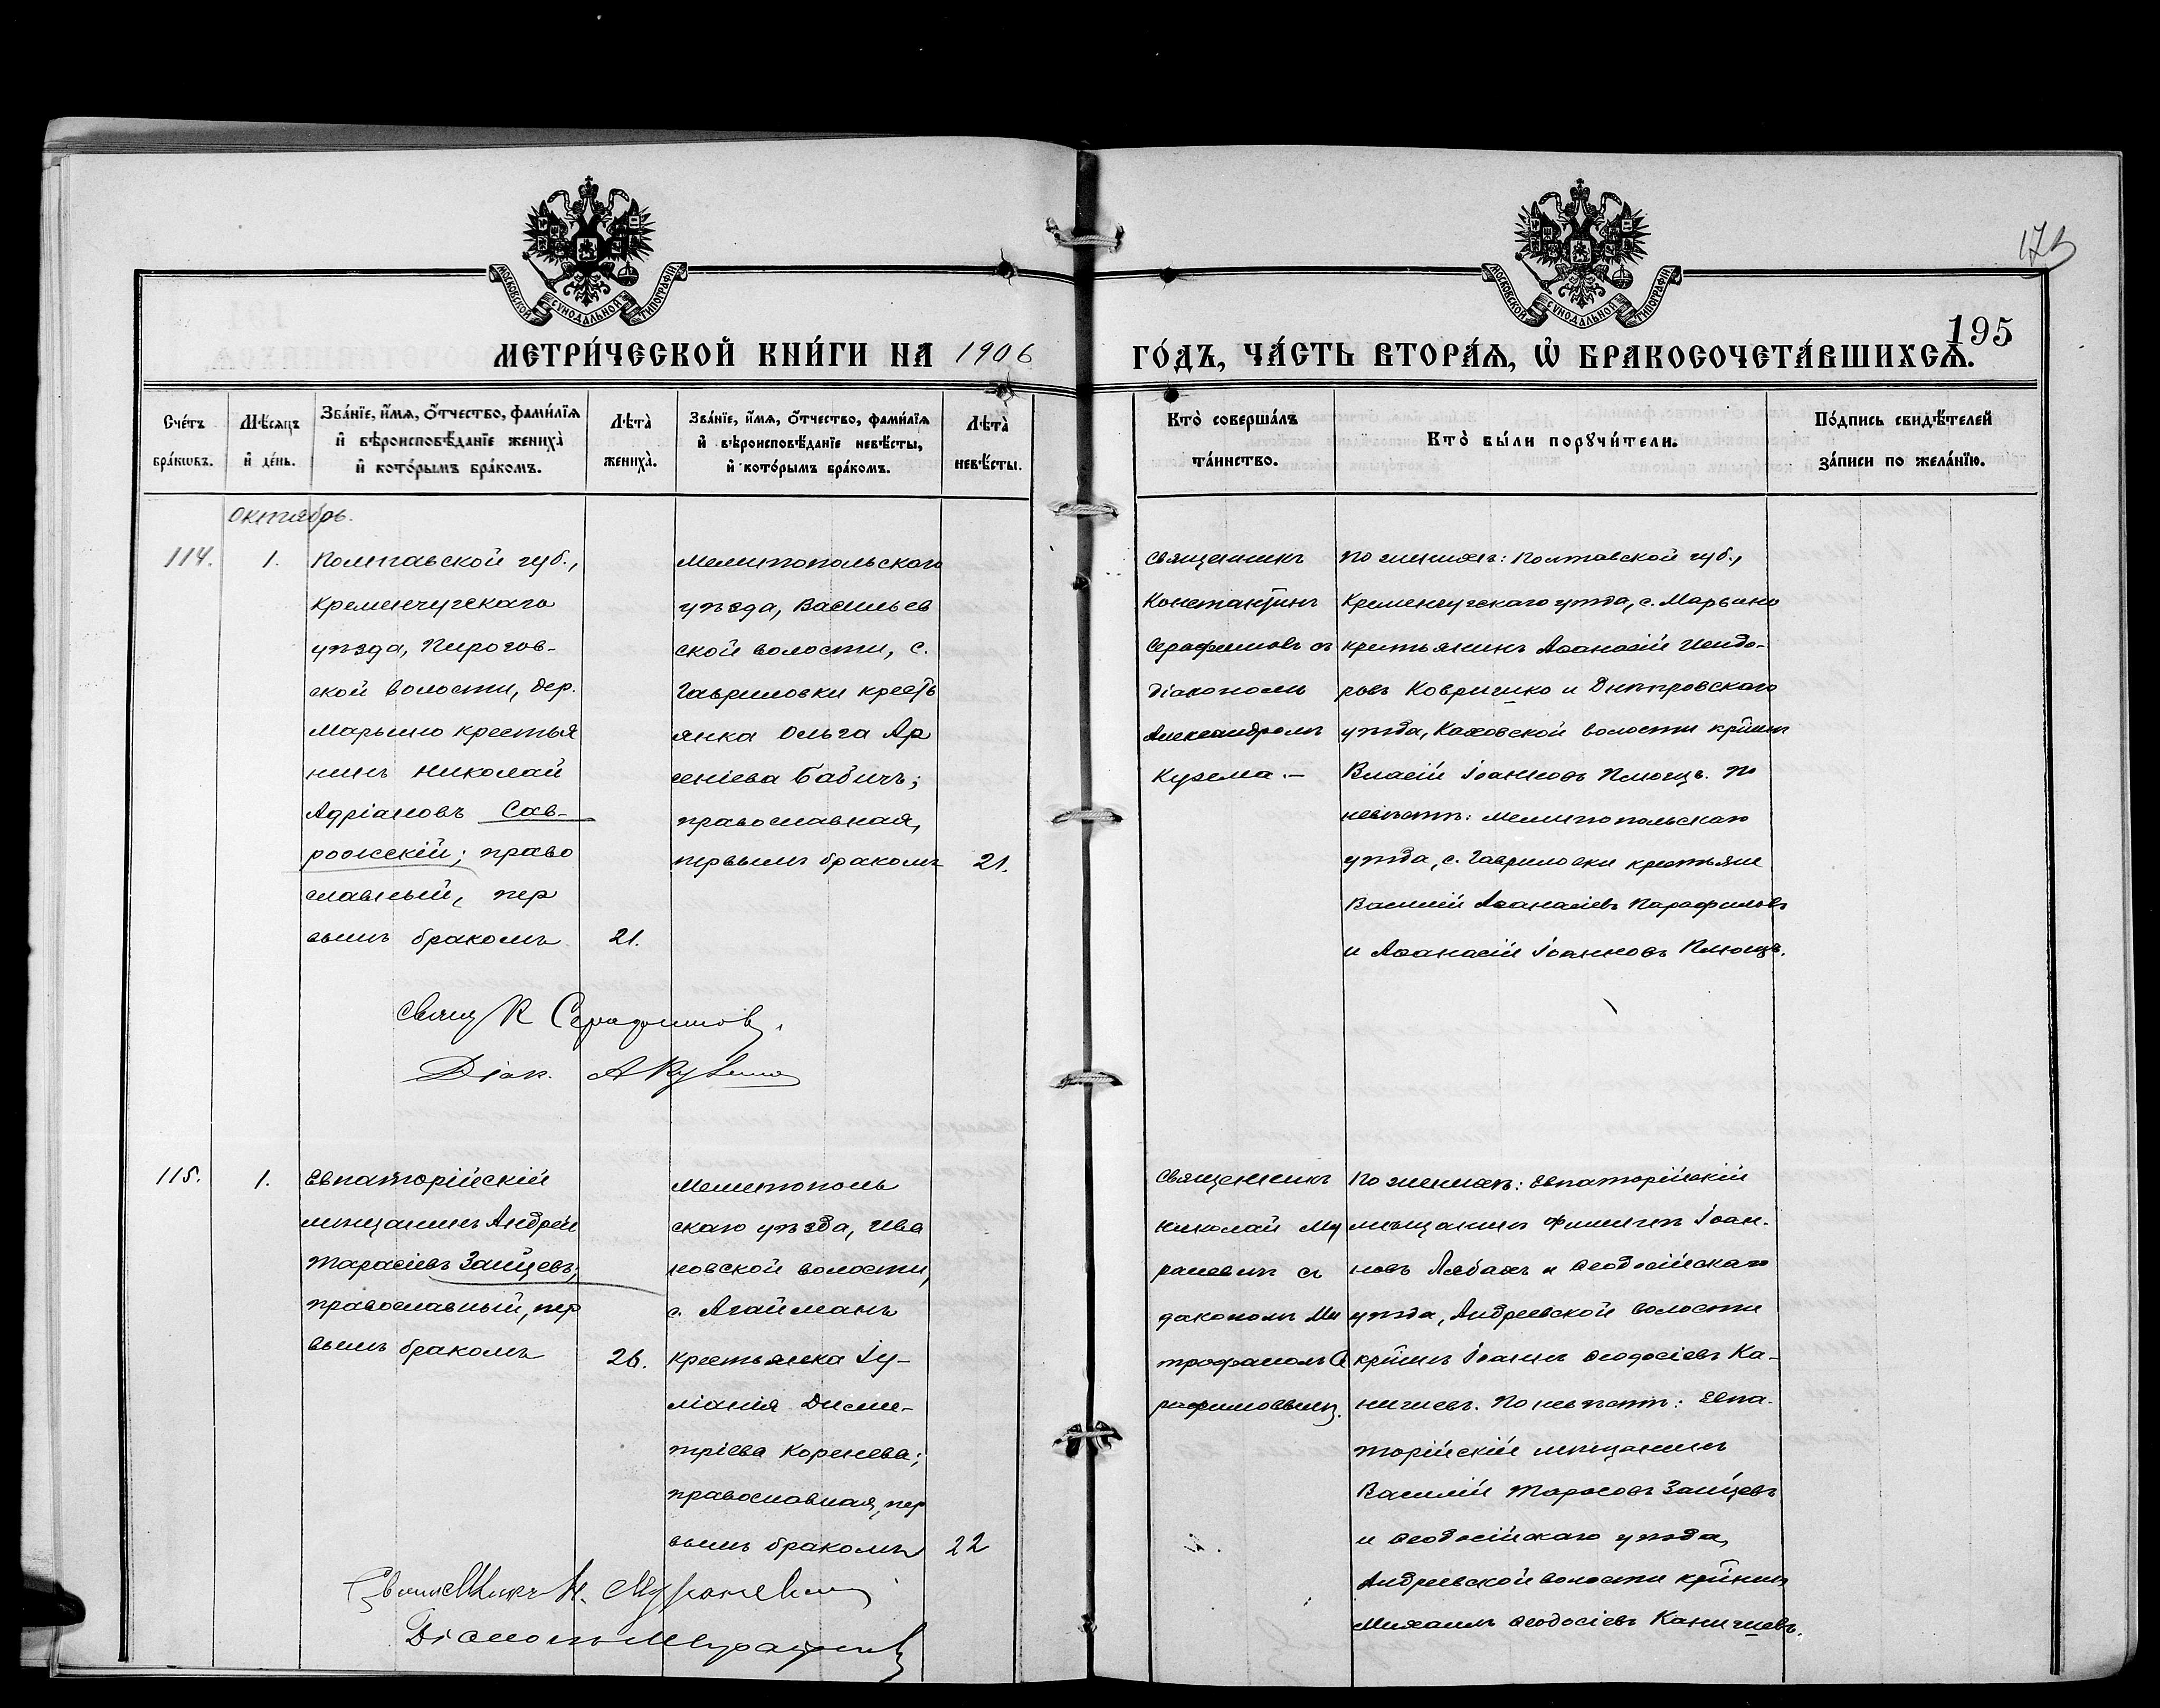 173
195
МОСКОВСКОЙ СѴНОДАЛЬНОЙ ТИПОГРАФІИ
МОСКОВСКОЙ СѴНОДАЛЬНОЙ ТИПОГРАФІИ
МЕТРИ́ЧЕСКОЙ КНИ́ГИ НА 1906 ГО́ДЪ, ЧА́СТЬ ВТОРА́Ѧ, Ѡ҆ БРАКОСОЧЕТА́ВШИХСѦ.
Сче́тъ
бра́кѡвъ.
Мѣ́сѧцъ
и҆ де́нь.
Зва́нїе, и҆́мѧ, ѻ҆́тчество, фами́лїѧ
и҆ вѣроисповѣ́данїе жениха̀
и҆ кото́рымъ бра́комъ.
Лѣта̀
жениха̀.
Зва́нїе, и҆́мѧ, ѻ҆́тчество, фами́лїѧ
и҆ вѣроисповѣ́данїе невѣ́сты,
и҆ кото́рымъ бра́комъ.
Лѣта̀
невѣ́сты.
Кто̀ соверша́лъ
та́инство.
Кто̀ бы́ли порꙋчи́тели.
По́дпись свидѣ́телей
за́писи по жела́нїю.
Октябрь.
114.
1.
Полтавской губ.,
Кременчугскаго
уѣзда, Пирогов-
ской волости, дер.
Марьино крестья
нинъ Николай
Адріановъ Сав-
рожскій; право
славный, пер
вымъ бракомъ
21.
Мелитопольскаго
уѣзда, Васильев
ской волости, с.
Гавриловки кресть
янка Ольга Ар
сеніева Бабичъ;
православная,
первымъ бракомъ
21.
Священникъ
Константинъ
Серафимовъ съ
діакономъ
Александромъ
Кузема.-
По женихѣ: Полтавской губ.,
Кременчугскаго уѣзда, с. Марьино
крестьянинъ Аѳанасій Исидо-
ровъ и Днѣпровскаго
уѣзда, Каховской волости кр̃нинъ
Власій Іоанновъ Плющъ. По
невѣстѣ: Мелитопольскаго
уѣзда, с. Гавриловки крестьяне
Василій Аѳанасіевъ Парафиловъ
и Аѳанасій Іоанновъ Плющъ.
Свящ К Серафимовъ.
Діак. А Кузема
115.
1.
Евпаторійскій
мѣщанинъ Андрей
Тарасіевъ Зайцевъ;
православный, пер
вымъ бракомъ
26.
Мелитополь
скаго уѣзда, Ива
новской волости,
с. Агайманъ
крестьянка Іу-
ліанія Дими-
тріева Коренева;
православная, пер
вымъ бракомъ
22
Священникъ
Николай Му
раневичъ съ
дакономъ Ми
трофаномъ Се
рафимовымъ.
По женихѣ: Евпаторійскій
мѣщанинъ Филиппъ Іоан-
новъ Лябахъ и Ѳеодосійскаго
уѣзда, Андреевской волости
кр̃нинъ Іоаннъ Ѳеодосіевъ Ка-
ничевъ. По невѣстѣ: Евпа-
торійскій мѣщанинъ
Василій Тарасовъ Зайцевъ
и Ѳеодосійскаго уѣзда,
Андреевской волости кр̃нинъ
Михаилъ Ѳеодосіевъ Каничевъ.
Священникъ Н. Мураневичъ
Діаконъ М Серафимовъ